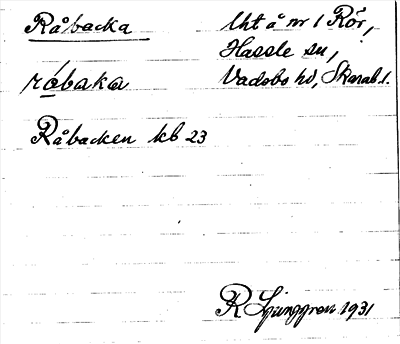 Råbacka
råbaka
Råbacken kb 23
Uht å nr 1 Rör,
Hassle sn,
Vadsbo hd, Skarab. l.
R Ljunggren 1931